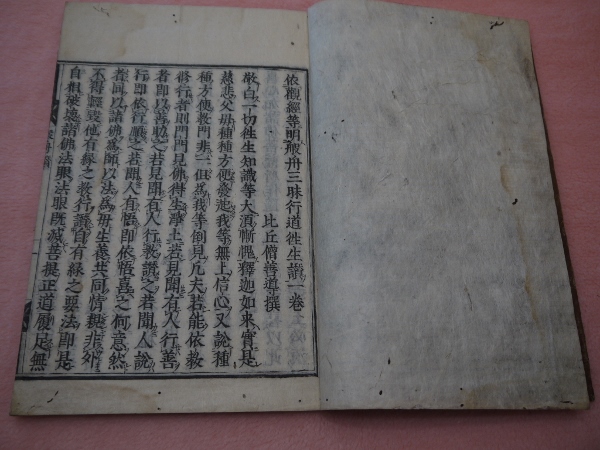 依觀經等明般舟三昧行道徃生讃一卷
比丘僧善導撰
敬白一切徃生知識等大須慚愧釋迦如來實是
慈悲父母種種方便發起我等無上信心又說種
種方便教門非一但為我等倒見凡夫若能依教
修行者則門門見佛得生淨土若見聞有人行善
者即以善助之若見聞有人行教讃之若聞人說
行即依行順之若聞人有悟即依悟喜之何意然
者同以諸佛為師以法為母生養共同情親非外
不得輕毀他有緣之教行讃自有緣之要法即是
自相破壞諸佛法眼法眼既滅菩提正道履足無